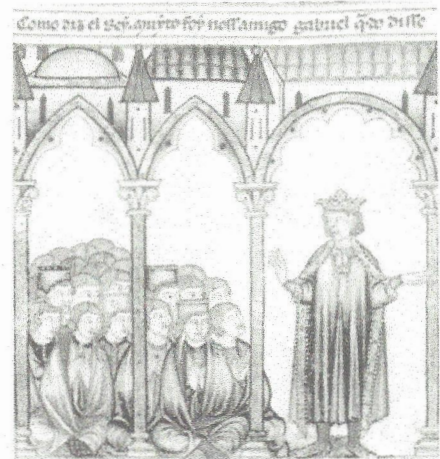 Como diz el Rey. quãto foy noss'amigo gabriel q̃do disse